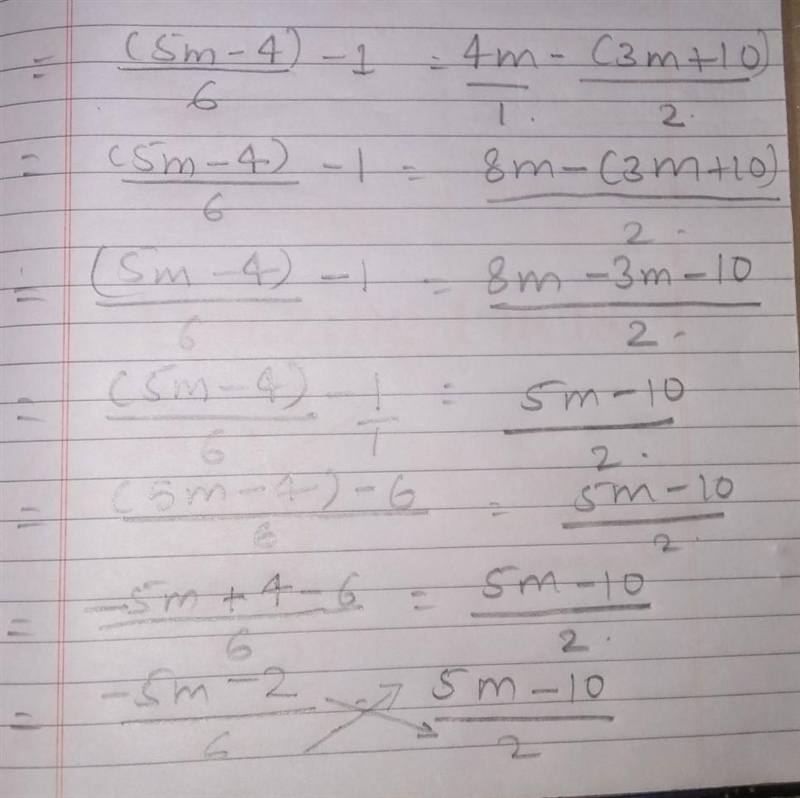 = (5m-4)/6 - 1 = 4m/1. - (3m+10)/2.
= (5m-4)/6 - 1 = 8m-(3m+10)/2.
= (5m-4)/6 - 1 = 8m-3m-10/2.
= (5m-4)/6 - 1/1 = 5m-10/2.
= (5m-4)-6/6 = 5m-10/2.
= -5m+4-6/6 = 5m-10/2.
= -5m-2/6 = 5m-10/2